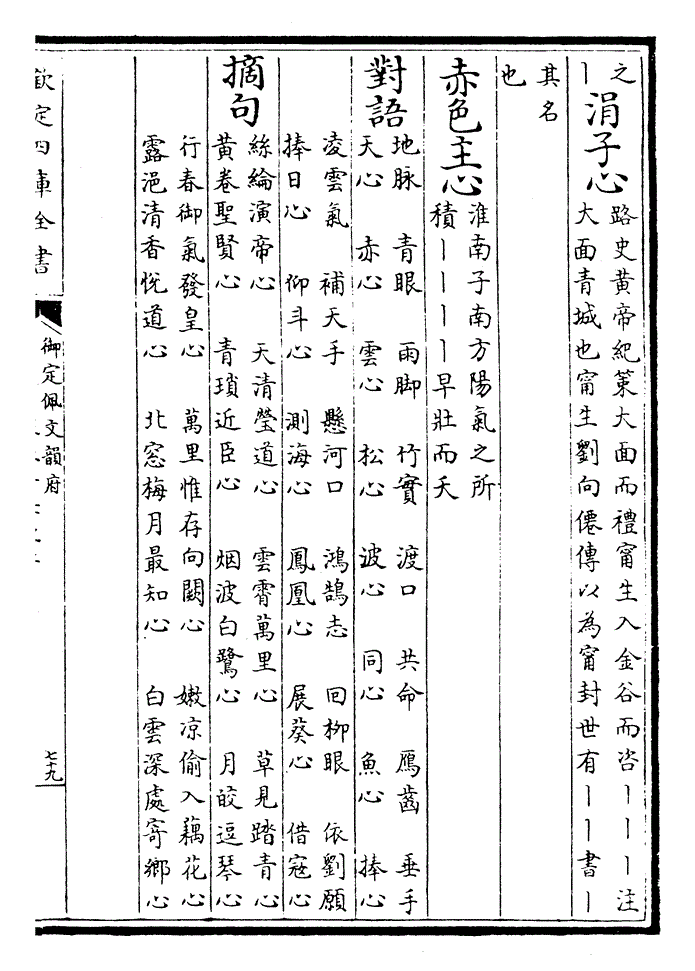 之
丨
涓子心
路史黄帝紀策大面而禮甯生入金谷而咨丨丨丨注
大面青城也甯生劉向僊傳以為甯封世有丨丨書丨
其名
也
赤色主心
淮南子南方陽氣之所
積丨丨丨丨早壯而夭
對語
地脉 青眼 雨脚 竹實 渡口 共命 鴈齒 垂手
天心 赤心 雲心 松心 波心 同心 魚心 捧心
凌雲氣 補天手 懸河口 鴻鵠志 回柳眼 依劉願
捧日心 仰斗心 測海心 鳳凰心 展葵心 借寇心
摘句
絲綸演帝心 天清瑩道心 雲霄萬里心 草見踏青心
黄卷聖賢心 青瑣近臣心 烟波白鷺心 月皎逗琴心
行春御氣發皇心 萬里惟存向闕心 嫩凉偷入藕花心
露浥清香悦道心 北窓梅月最知心 白雲深處寄鄉心
欽定四庫全書
御定佩文韻府
七十九